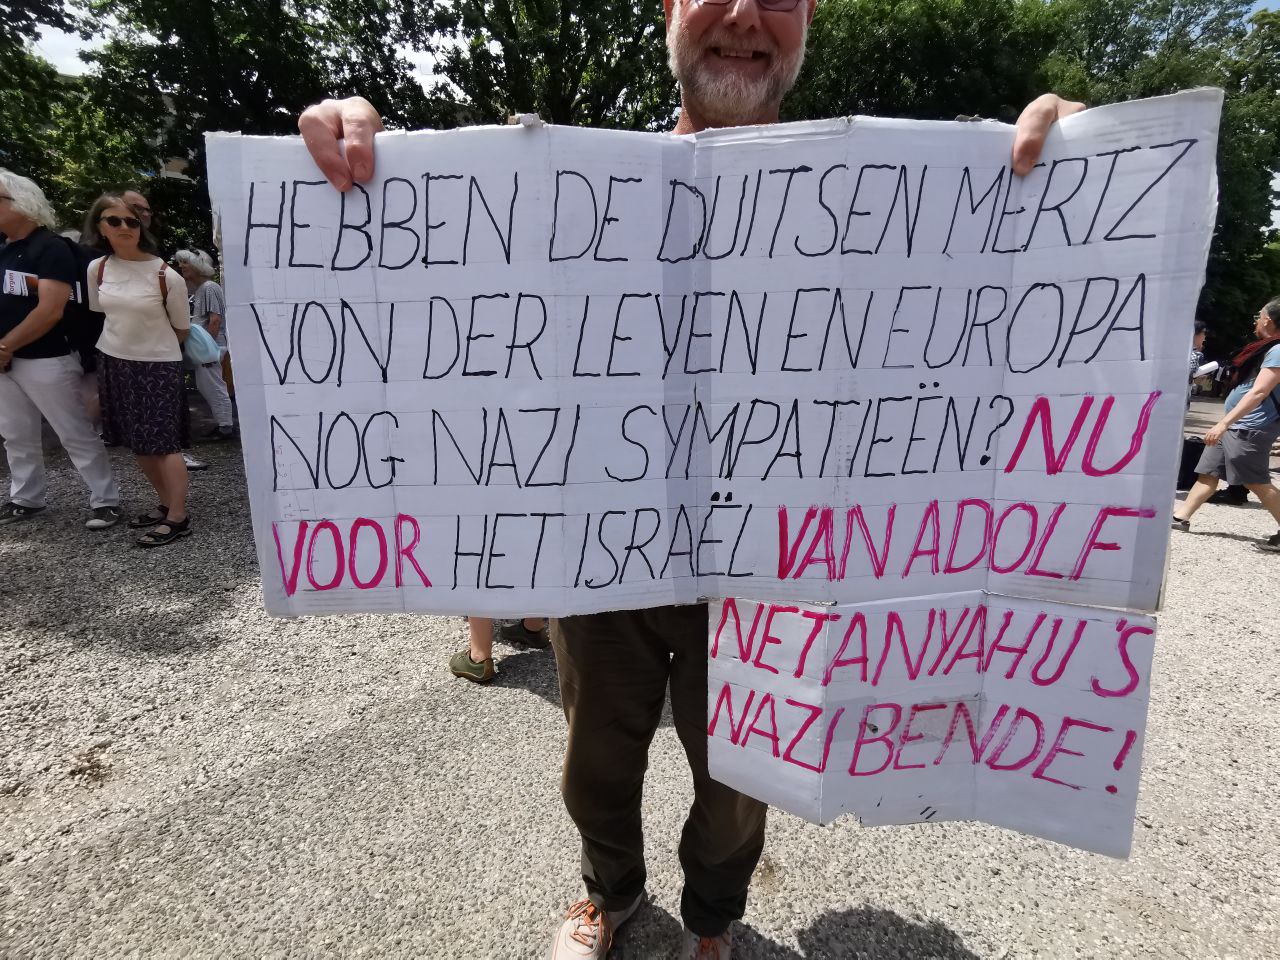 HEBBEN DE DUITSEN MERTZ
VON DER LEYEN EN EUROPA
NOG NAZI SYMPATIEËN? NU
VOOR HET ISRAËL VAN ADOLF
NETANYAHU'S
NAZI BENDE!